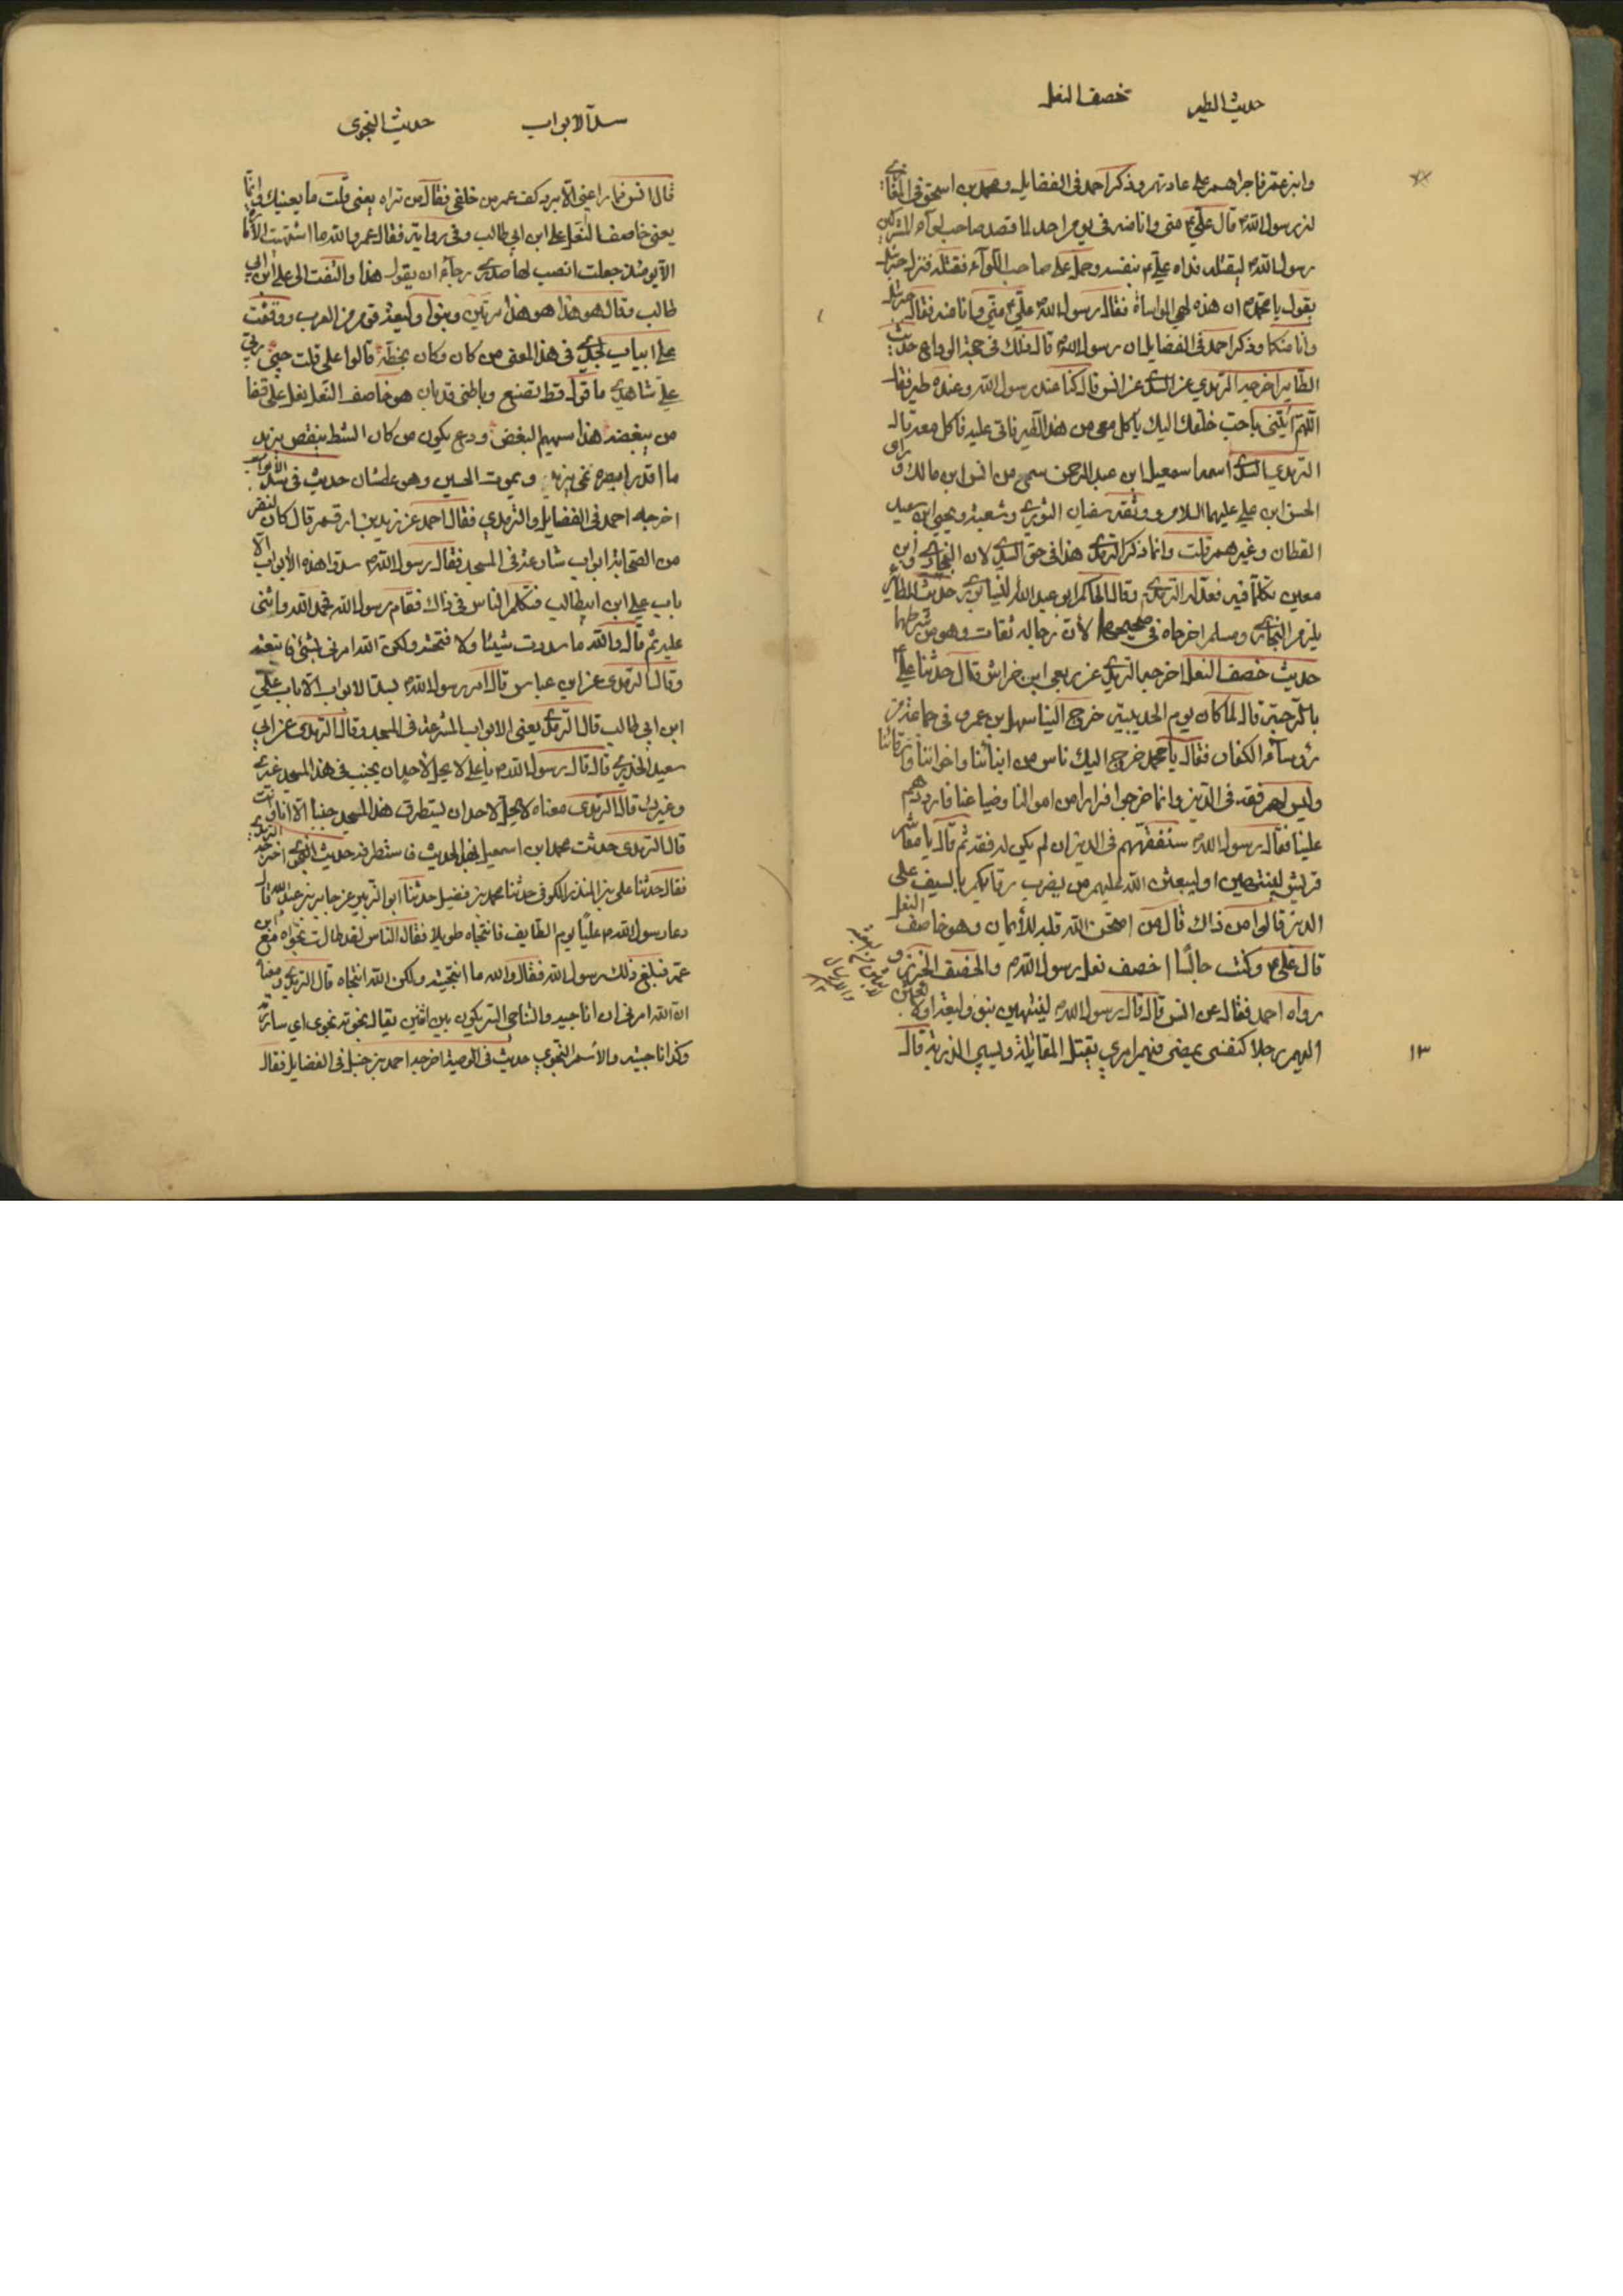 حديث الطير
خصف النعل
وابن عمر فاجراهم على عادتهم وذكر احمد في الفضايل ومحمد بن اسحق في المغازي
ان رسول الله قال علي مني وانا منه في يوم احد لما قصد صاحب لوآء المشركين
رسول الله ليقتله فداه علي بنفسه وحمل على صاحب اللوآء فقتله فنزل جبرئيل
يقول يا محمد ان هذه لهي المواساة فقال رسول الله علي مني وانا منه فقال جبرئيل
وانا منكما وذكر احمد في الفضايل ان رسول الله قال ذلك في حجة الوداع حديث
الطاير اخرجه الترمذي عن السدي عن انس قال كنا عند رسول الله وعنده طير فقال
اللهم ائتني باحب خلقك اليك ياكل معي من هذا الطير فاتى علي فاكل معه قال
الترمذي السدي اسمه اسمعيل ابن عبد الرحمن سمع من انس ابن مالك وراى
الحسن ابن علي عليهما السلام ووثقه سفيان الثوري وشعبة ويحيى ابن سعيد
القطان وغيرهم قلت وانما ذكر الترمذي هذا في حق السدي لان البخاري وابن
معين تكلما فيه فعدله الترمذي وقال الحاكم ابو عبد الله النيسابوري حديث الطاير
يلزم البخاري ومسلم اخرجاه في صحيحهما لأن رجاله ثقات وهو من شرطهما
حديث خصف النعل اخرجه الترمذي عن ربعي ابن خراش قال حدثنا علي
بالرحبة قال لما كان يوم الحديبية خرج الينا سهيل بن عمرو في جماعة من
رؤسآء الكفار فقال يا محمد خرج اليك ناس من ابنائنا واخواننا وارقائنا
وليس لهم فقه في الدين وانما خرجوا فرارا من اموالنا وضياعنا فارددهم
علينا فقال رسول الله سنفقههم في الدين ان لم يكن له فقه ثم قال يا معاشر
قريش لينتهين او ليبعثن الله عليهم من يضرب رقابكم بالسيف على
الدين قالوا من ذاك قال من امتحن الله قلبه للأيمان وهو خاصف النعل
قال علي وكنت جالسا اخصف نعل رسول الله والخصف الخرز و
رواه احمد فقال عن انس قال قال رسول الله لينتهين بنو وليعة او لابعثن
اليهم رجلا كنفسي يمضي فيهم امري يقتل المقاتلة ويسبي الذرية قال
١٣
سد الابواب
حديث النجوى
قال انس فما راعني الا برد كف عمر من خلفي فقال من تراه يعني قلت ما يعنيك وانما
يعني خاصف النعل علي ابن ابي طالب وفي رواية فقال عمر والله ما اشتهيت الأمارة
الا يومئذ جعلت انصب لها صدري رجآء ان يقول هذا والتفت الى علي ابن ابي
طالب وقال هو هذا هو هذا مرتين وبنو وليعة قوم من العرب ووقفت
على ابيات لجدي في هذا المعنى من كان وكان بخطه قالوا علي قلت حبي ربي
علي شاهدي ما قول قط تصنع وباطني قد بان هو خاصف النعل نعل على قفا
من يبغضه هذا سهيم البغض ودع يكون من كان الشط ينقص يزيد
ما اقدر ابصره غمي يزيد ويموت الحسين وهو عطشان حديث في سد الأبواب
اخرجه احمد في الفضايل والترمذي فقال احمد عن زيد بن ارقم قال كان لنفر
من الصحابة ابواب شارعة في المسجد فقال رسول الله سدوا هذه الأبواب الا
باب علي ابن ابيطالب فتكلم الناس في ذاك فقام رسول الله فحمد الله واثنى
عليه ثم قال والله ما سددت شيئا ولا فتحته ولكن الله امرني بشئ فاتبعته
وقال الترمذي عن ابن عباس قال امر رسول الله بسد الابواب الا باب علي
ابن ابي طالب قال الترمذي يعني الابواب المشرعة في المسجد وقال الترمذي عن ابي
سعيد الخدري قال قال رسول الله يا علي لا يحل لأحد ان يجنب في هذا المسجد غيري
وغيرك قال الترمذي معناه لا يحل لاحد ان يستطرق هذا المسجد جنبا الا انا وانت
قال الترمذي حدثت محمد ابن اسمعيل بهذا الحديث فاستطرفه حديث النجوى اخرجه الترمذي
فقال حدثنا علي بن المنذر الكوفي حدثنا محمد بن فضيل حدثنا ابو الزبير عن جابر بن عبد الله قال
دعا رسول الله عليا يوم الطايف فانتجاه طويلا فقال الناس لقد طالت نجواه مع ابن
عمه فبلغ ذلك رسول الله فقال والله ما انتجيته ولكن الله انتجاه قال الترمذي ومعناه
ان الله امرني ان اناجيه والتناجي السر يكون بين اثنين يقال نجوته نجوى اي ساررته
وكذا ناجيته والأسم النجوى حديث في الوصية اخرجه احمد بن حنبل في الفضايل فقال